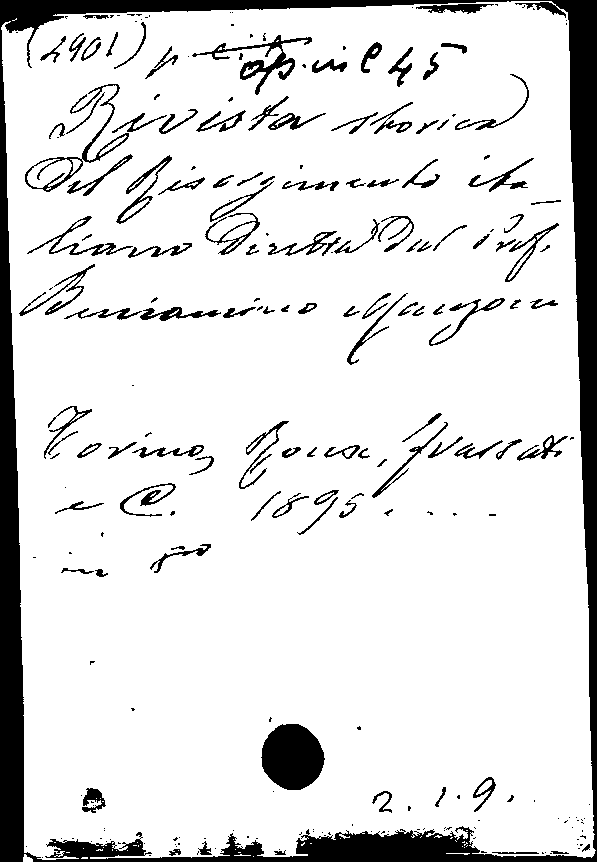 (2901) op. in C 45
Rivista storica
del Risorgimento ita-
liano Diretta dal Prof.
Beniamino Manzone
Torino, Roux, Frassati
e C. 1895 . . . .
in 8vo
2.1.9.